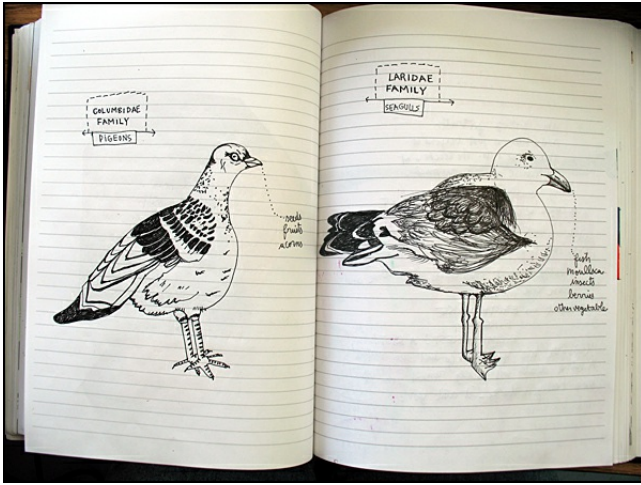 COLUMBIDAE
FAMILY
PIGEONS
seeds
fruits
acorns
LARIDAE
FAMILY
SEAGULLS
fish
moullsca
insects
berries
other vegetable